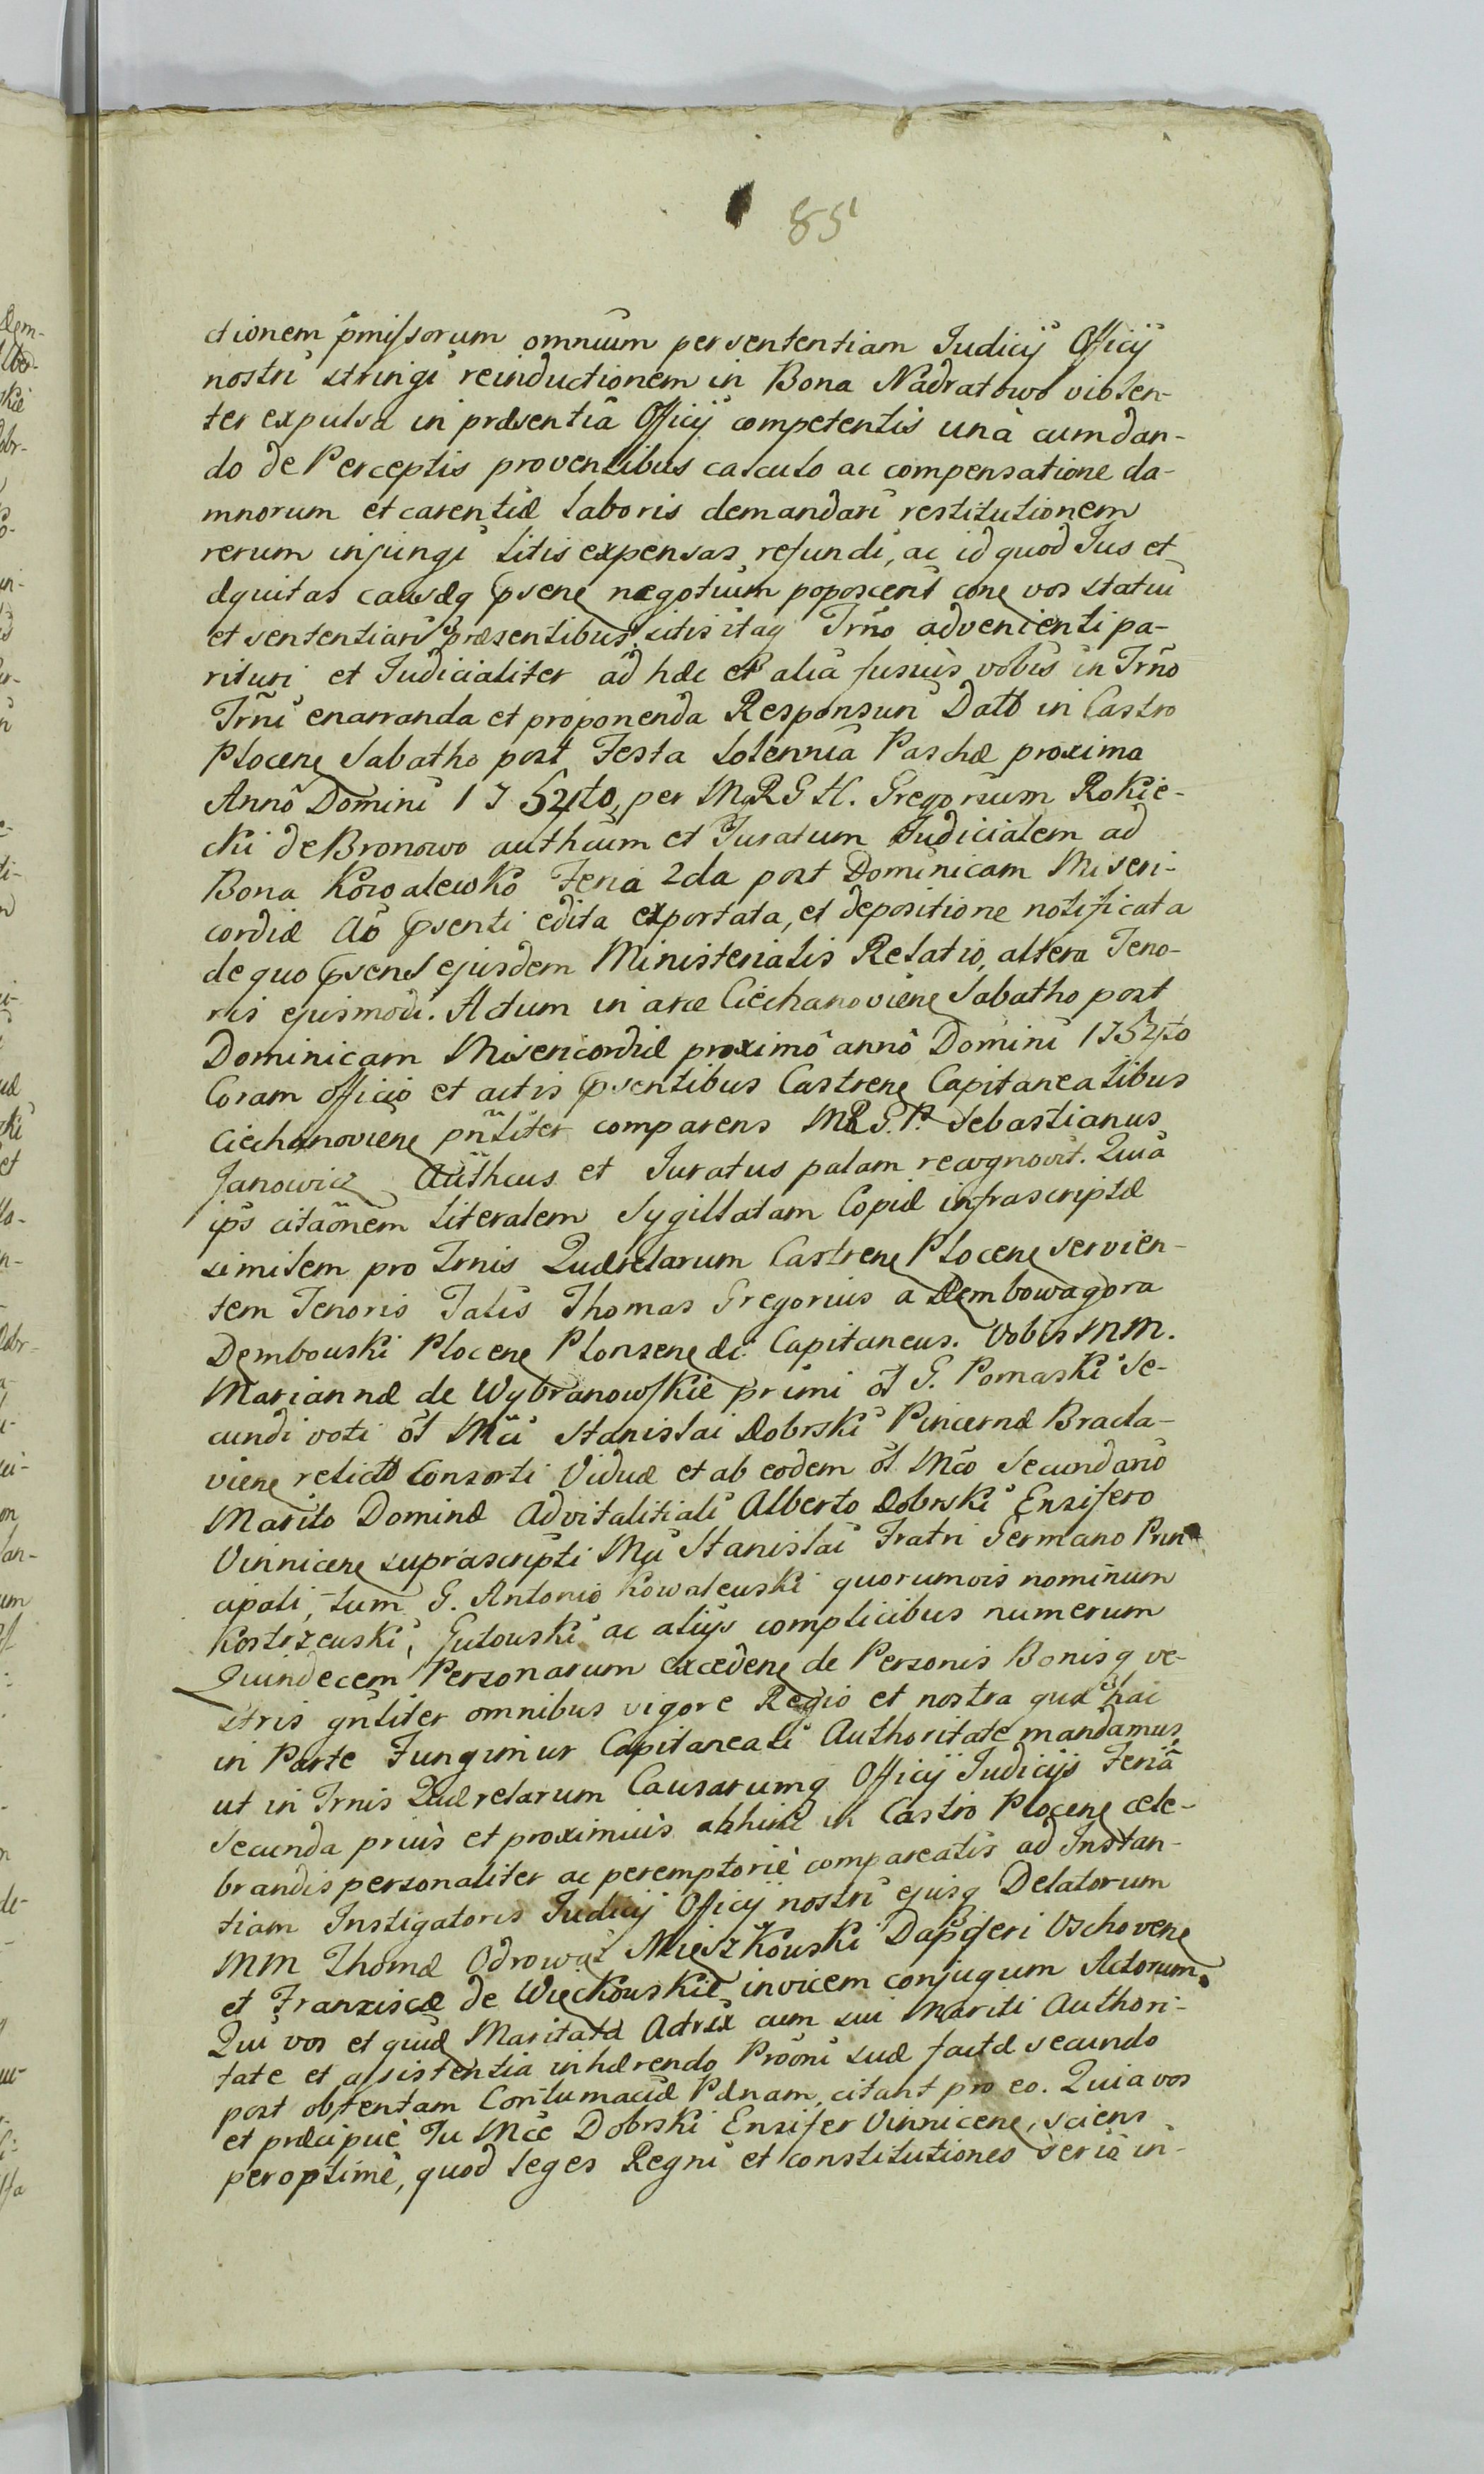 85
ctionem p̃missorum omnium per sententiam Judicij Officij
nostri stringi reinductionem in Bona Nadratowo violen-
ter expulsa in præsentiâ Officij competentis unà cum dan-
do de Perceptis proventibus calculo ac compensatione da-
mnorum et carentiæ laboris demandari restitutionem
rerum injungi litis expensas refundi, ac id quod Jus et
æquitas causæq psene negotium poposcerit cone vos statui
et sententiari præsentibus sitis itaq Trño advenienti pa-
rituri et Judicialiter ad hæc et alia fusius vobis in Trño
Trñi enarranda et proponenda Responsuri Datt in Castro
Plocene Sabatho post Festa Solennia Paschæ proxima
Annô Domini 1754to per MRGH. Gregorium Rokic-
cki de Bronowo authcum et Juratum Judicialem ad
Bona Kowalewko Feria 2da post Dominicam Miseri-
cordiæ Aõ psenti edita exportata, et depositione notificata
de quo psens ejusdem Ministerialis Relatio, altera Teno-
ris ejusmodi. Actum in arce Ciechanoviene Sabatho post
Dominicam Misericordiæ proximô annô Domini 1754to
Coram officio et actis psentibus Castrene Capitanealibus
Ciechanoviene pñliter comparens MRGP. Sebastianus
Janowicz Authcus et Juratus palam recognovit. Quia
ips citaõnem literalem Sygillatam Copiæ infrascriptæ
similem pro Trnis Quærelarum Castrene Plocene servien-
tem Tenoris Talis Thomas Gregorius a Dembowagora
Dembouski Plocene Plonsene &c Capitaneus. Vobis MM.
Mariannæ de Wybranowskie primi ol G. Pomaski Se-
cundi voti ol Mci Stanislai Dobrski Pincernæ Bracla-
viene relictt Consorti Viduæ et ab eodem ol Mco Secundario
Marito Dominæ Advitalitiali Alberto Dobrski Ensifero
Vinnicene suprascripti Mci Stanislai Fratri Germano Prin
cipali, tum G. Antonio Kowaleuski quorumvis nominum
Kostrzeuski, Gutouski ac alijs complicibus numerum
Quindecem Personarum excedene de Personis Bonisq ve-
stris gñliter omnibus vigore Regio et nostra qua hac
in Parte Fungimur Capitaneali Authoritate mandamus,
ut in Trnis Quærelarum Causarumq Officij Judicijs Feriâ
Secunda priùs et proximiùs abhinc in Castro Plocene cele-
brandis personaliter ac peremptoriè compareatis ad Instan-
tiam Instigatoris Judicij Officij nostri ejusq Delatorum
MM Thomæ Odrowąz Mieszkouski Dapiferi Vschovene
et Franciscæ de Więckouskie invicem conjugum Actorum.
Qui vos et quid Maritata Actrix cum sui Mariti Authori-
tate et assistentia inhærendo Proõni suæ factæ secundo
post obtentam Contumaciæ Pænam, citant pro eo. Quia vos
et præcipuè Tu Mce Dobrski Ensifer Vinnicene, sciens
peroptimè, quod leges Regni et constitutiones seriò in-